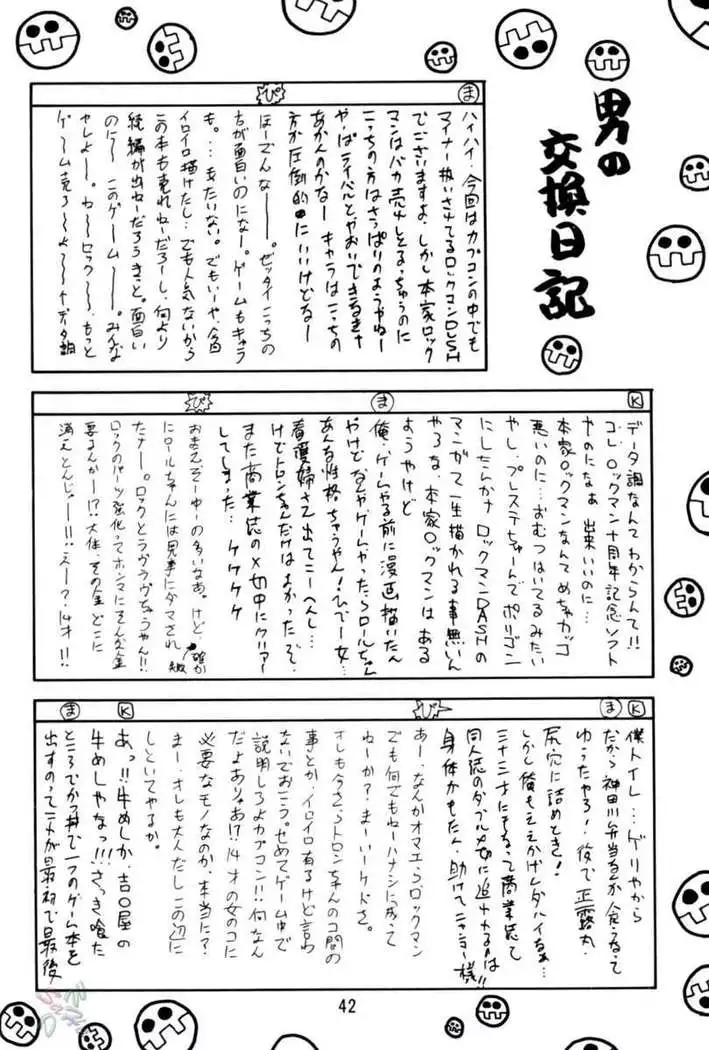 男の
交換日記
ま
ハイハイ、今回はカプコンの中でも
マイナー扱いされてるロックマンDASH
でございますよ。しかし本家ロック
マンはバカ売れしとるっちゅうのに
こっちの方はさっぱりのようやねー
やっぱライバルとやおいできるきゃ
あかんのかなー キャラはこっちの
方が圧倒的にいいけどなー
ぴ
ほーでんなー。ゼッタイこっちの
ちが面白いのになー。ゲームもキャラ
も。…もったいない。でもいーや、今回
イロイロ描けたし…でも人気ないから
この本も売れねーだろーし、何より
続編が出ねーだろうきっと。面白い
のにー このゲームー。みんな
やれよー。ねーロックー、もっと
ゲーム売ろーよー データ調
K
データ調なんてわからんて!!
コレロックマン十周年記念ソフト
やのになぁ 出来いいのに…
本家ロックマンなんてめちゃカッコ
悪いのに…おむつはいてるみたい
やし。プレステちゅーんでポリゴン
にしたんかナ ロックマンDASHの
マンガて一生描かれる事無いん
やろな、本家ロックマンはある
ようやけど
ま
俺、ゲームやる前に漫画描いたん
やけどなんやゲームやったらロールちゃん
あんな性格ちゃうやん!ひでー女…
看護婦さん出てこーへんし…
けどトロンちゃんだけはよかったぞ。
また商業誌の〆切中にクリアー
してしまった… ケケケケ
ぴ
おまえぞーゆーの多いなあ。けど、確か
にロールちゃんには見事にダマされ
たナー。ロックとラヴラヴちゃうやん!!
ロックのパーツ強化ってホンマにそんな金
要るんかー!?大体、その金どこに
消えとんじゃー!!えー?14才!!
K
僕トイレ…ゲリやから
ま
だから神田川弁当なんか食うなって
ゆうたやろ!後で正露丸
尻穴に詰めとき!
しかし俺もええかげんダハイなぁ…
三十三才にもなって商業誌て
同人誌のダブル〆切に追われるのは!!
身体がもたん、助けてニャミー様!!
ぴ
あー、なんかオマエらロックマン
でも何でもねーハナシに成って
ねーか?まーいーケドさ。
オレも今さらトロンちゃんのコ問の
事とか、イロイロ有るけど言わ
ないでおこう。せめてゲーム中で
説明しろよカプコン!!何なん
だよありゃあ!?14才の女のコに
必要なモノなのか、本当に?
まー、オレも大人だしこの辺に
しといてやるか。
K
あっ!!牛めしか、吉○屋の
牛めしやなっ!!!さっき喰た
ま
ところでかつ丼で一つのゲーム本を
出すのってコレが最初で最後
42